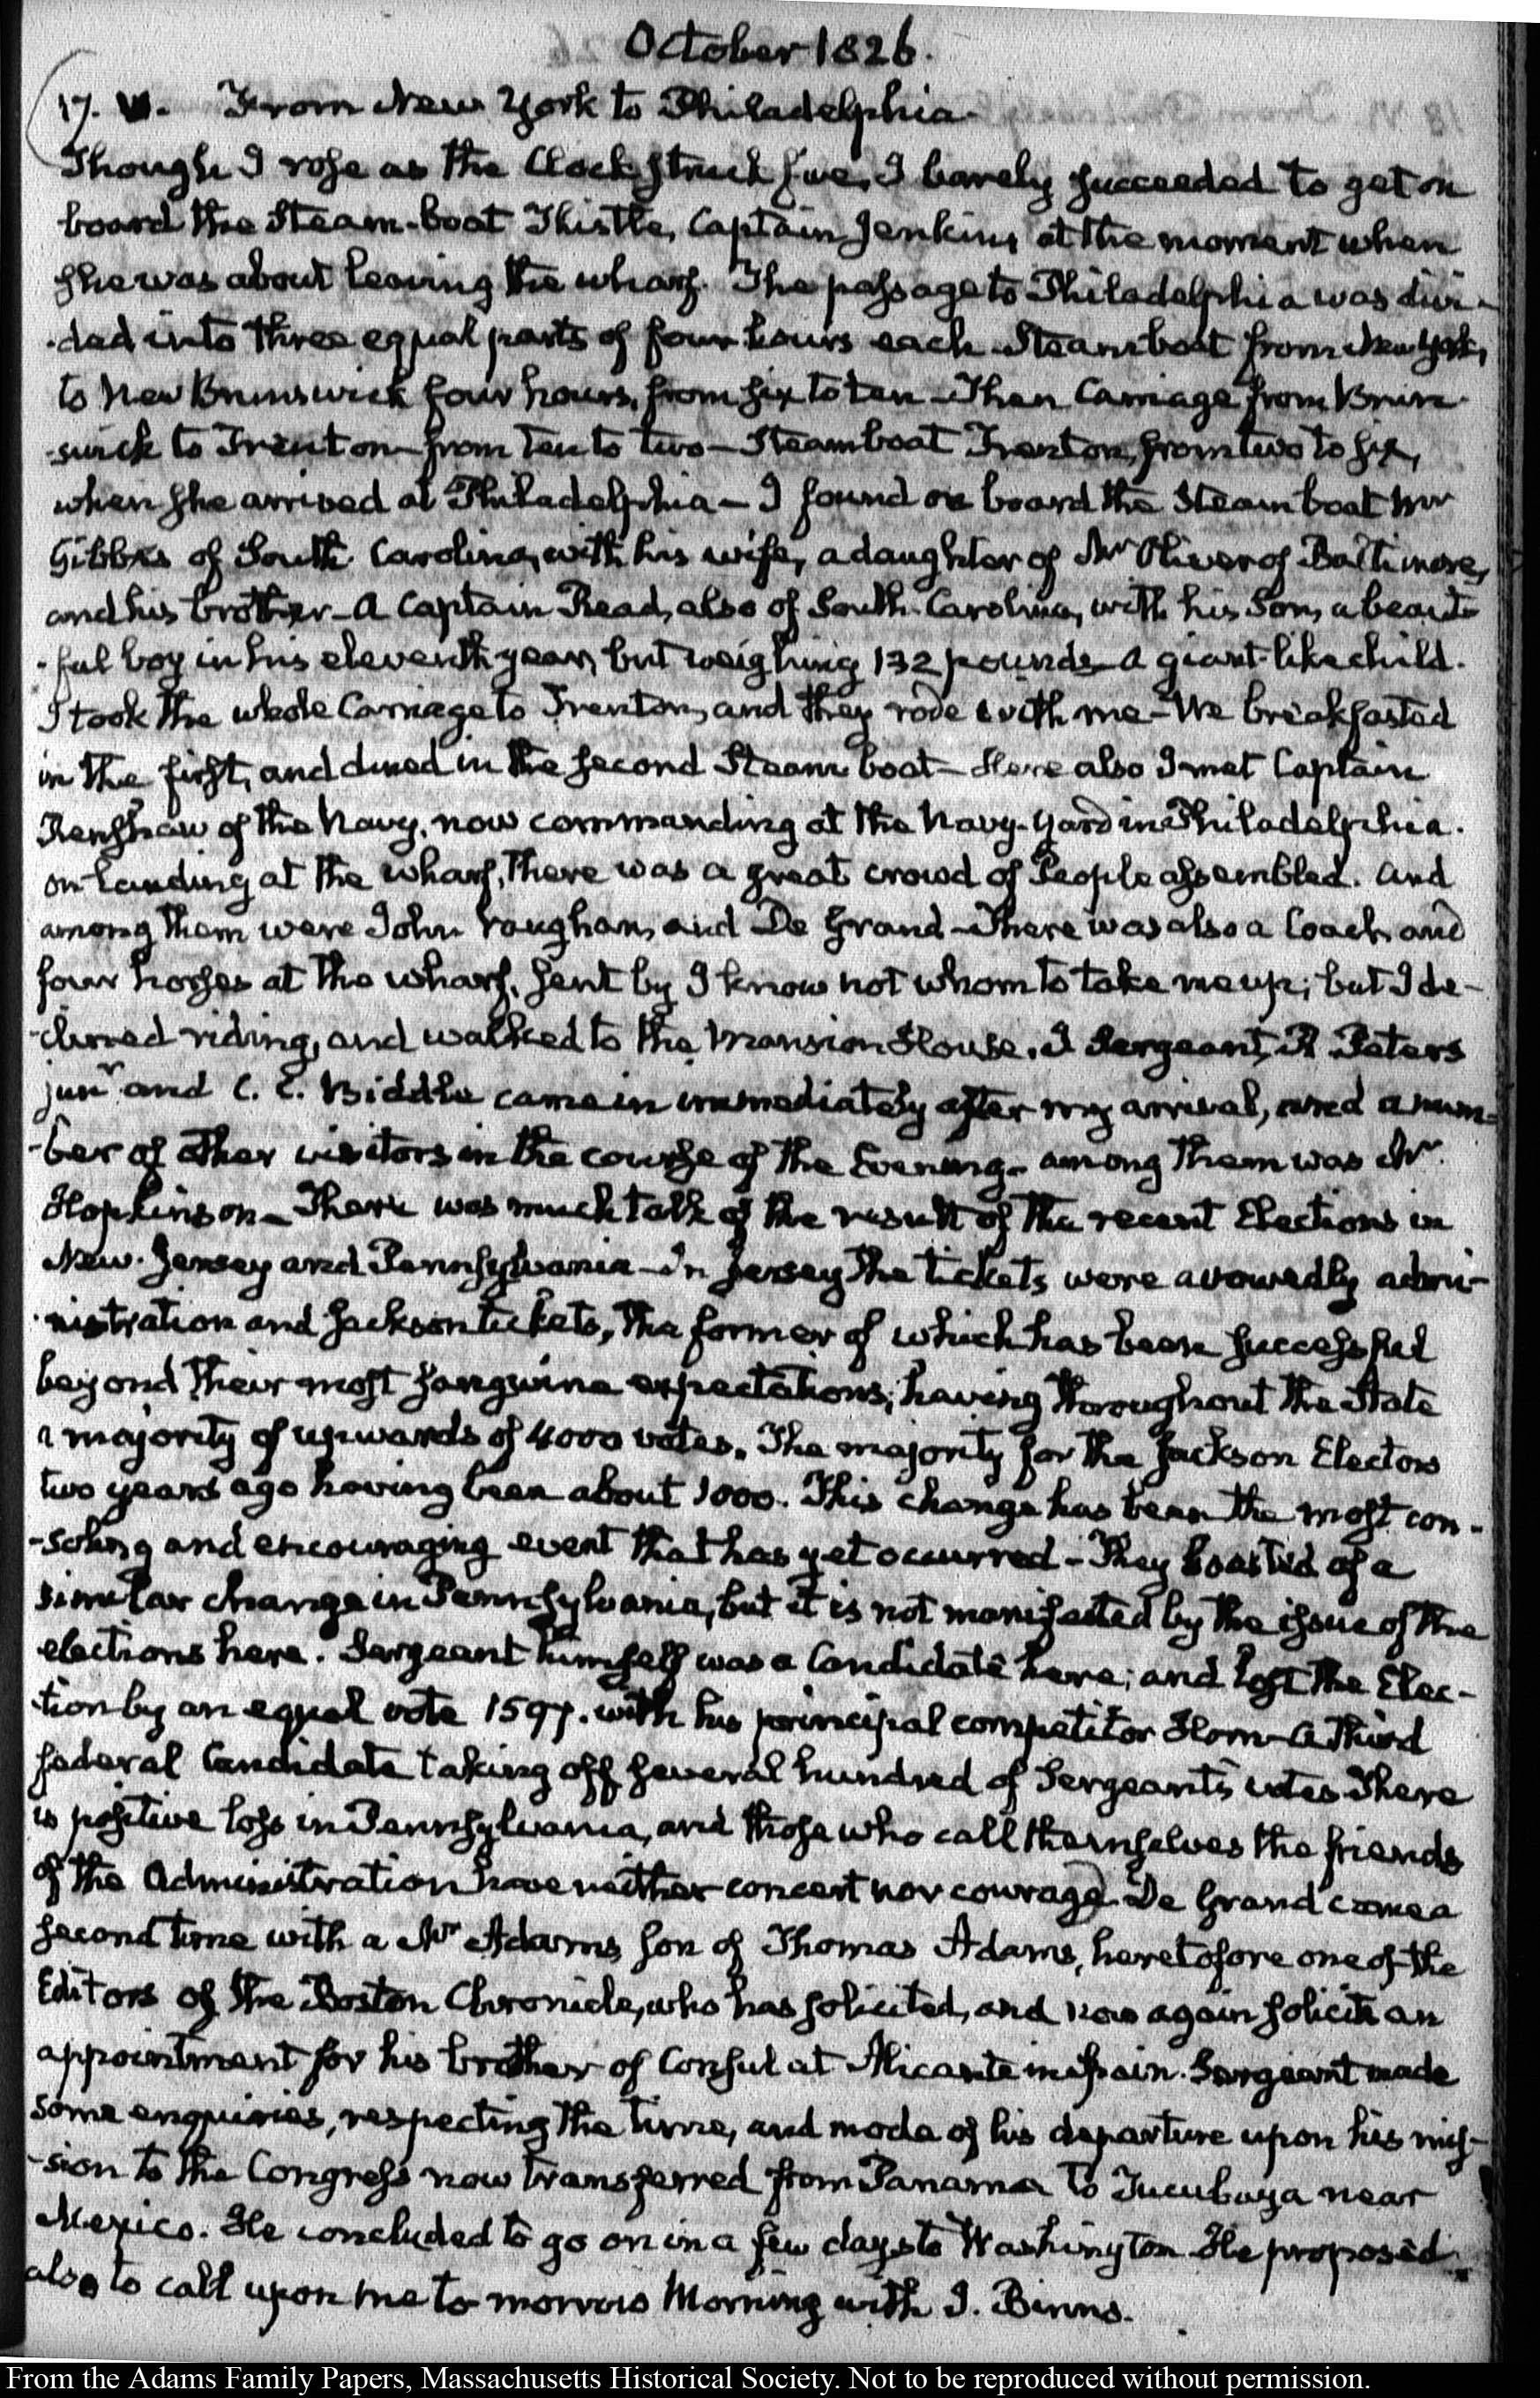 October 1826.
17. VI. From New York to Philadelphia.
Though I rose as the Clock struck five, I barely succeeded to get on
board the Steam-boat Thistle, Captain Jenkins at the moment when
she was about leaving the wharf. The passage to Philadelphia was divi-
-ded into three equal parts of four hours each Steam boat from New York,
to New Brunswick four hours, from six to ten—Then Carriage from Bruns-
-wick to Trenton—from ten to two—Steamboat Trenton, from two to six,
when she arrived at Philadelphia—I found on board the Steam boat Mr
Gibbes of South Carolina, with his wife, a daughter of Mr Oliver of Baltimore,
and his brother—A Captain Read, also of South-Carolina, with his Son, a beauti-
-ful boy in his eleventh year, but weighing 132 pounds—a giant-like child.
I took the whole Carriage to Trenton, and they rode with me—We breakfasted
in the first, and dined in the second Steam boat—Here also I met Captain
Renshaw of the Navy, now commanding at the Navy-Yard in Philadelphia.
on landing at the wharf, there was a great crowd of People assembled. and
among them were John Vaughan, and De Grand—There was also a Coach and
four horses at the wharf, sent by I know not whom to take me up; but I de-
-clined riding, and walked to the Mansion House. J Sergeant, R Peters
junr and C. C. Biddle came in immediately after my arrival, and a num-
-ber of other visitors in the course of the Evening—among them was Mr
Hopkinson—There was much talk of the result of the recent Elections in
New-Jersey and Pennsylvania—In Jersey the tickets were avowedly admi-
-nistration and Jackson tickets, the former of which has been successful
beyond their most sanguine expectations; having throughout the State
a majority of upwards of 4000 votes. The majority for the Jackson Electors
two years ago having been about 1000. This change has been the most con-
-soling and encouraging event that has yet occurred—They boasted of a
similar change in Pennsylvania, but it is not manifested by the issue of the
elections here. Sergeant himself was a Candidate here; and lost the Elec-
-tion by an equal vote 1597. with his principal competitor Horn—A third
federal Candidate taking off several hundred of Sergeant's votes There
is positive loss in Pennsylvania, and those who call themselves the friends
of the Administration have neither concert nor courage) De Grand came a
second time with a Mr Adams, son of Thomas Adams, heretofore one of the
Editors of the Boston Chronicle, who has solicited, and now again solicits an
appointment for his brother of Consul at Alicante in Spain. Sergeant made
some enquiries, respecting the time, and mode of his departure upon his mis-
-sion to the Congress now transferred from Panama to Tucubaya near
Mexico. He concluded to go on in a few days to Washington. He proposed
also to call upon me to-morrow Morning with J. Binns.
From the Adams Family Papers, Massachusetts Historical Society. Not to be reproduced without permission.